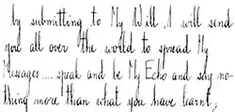 by submitting to My Will, I will send
you all over the world to spread My
Messages.... speak and be My Echo and say no-
thing more than what you have learnt,